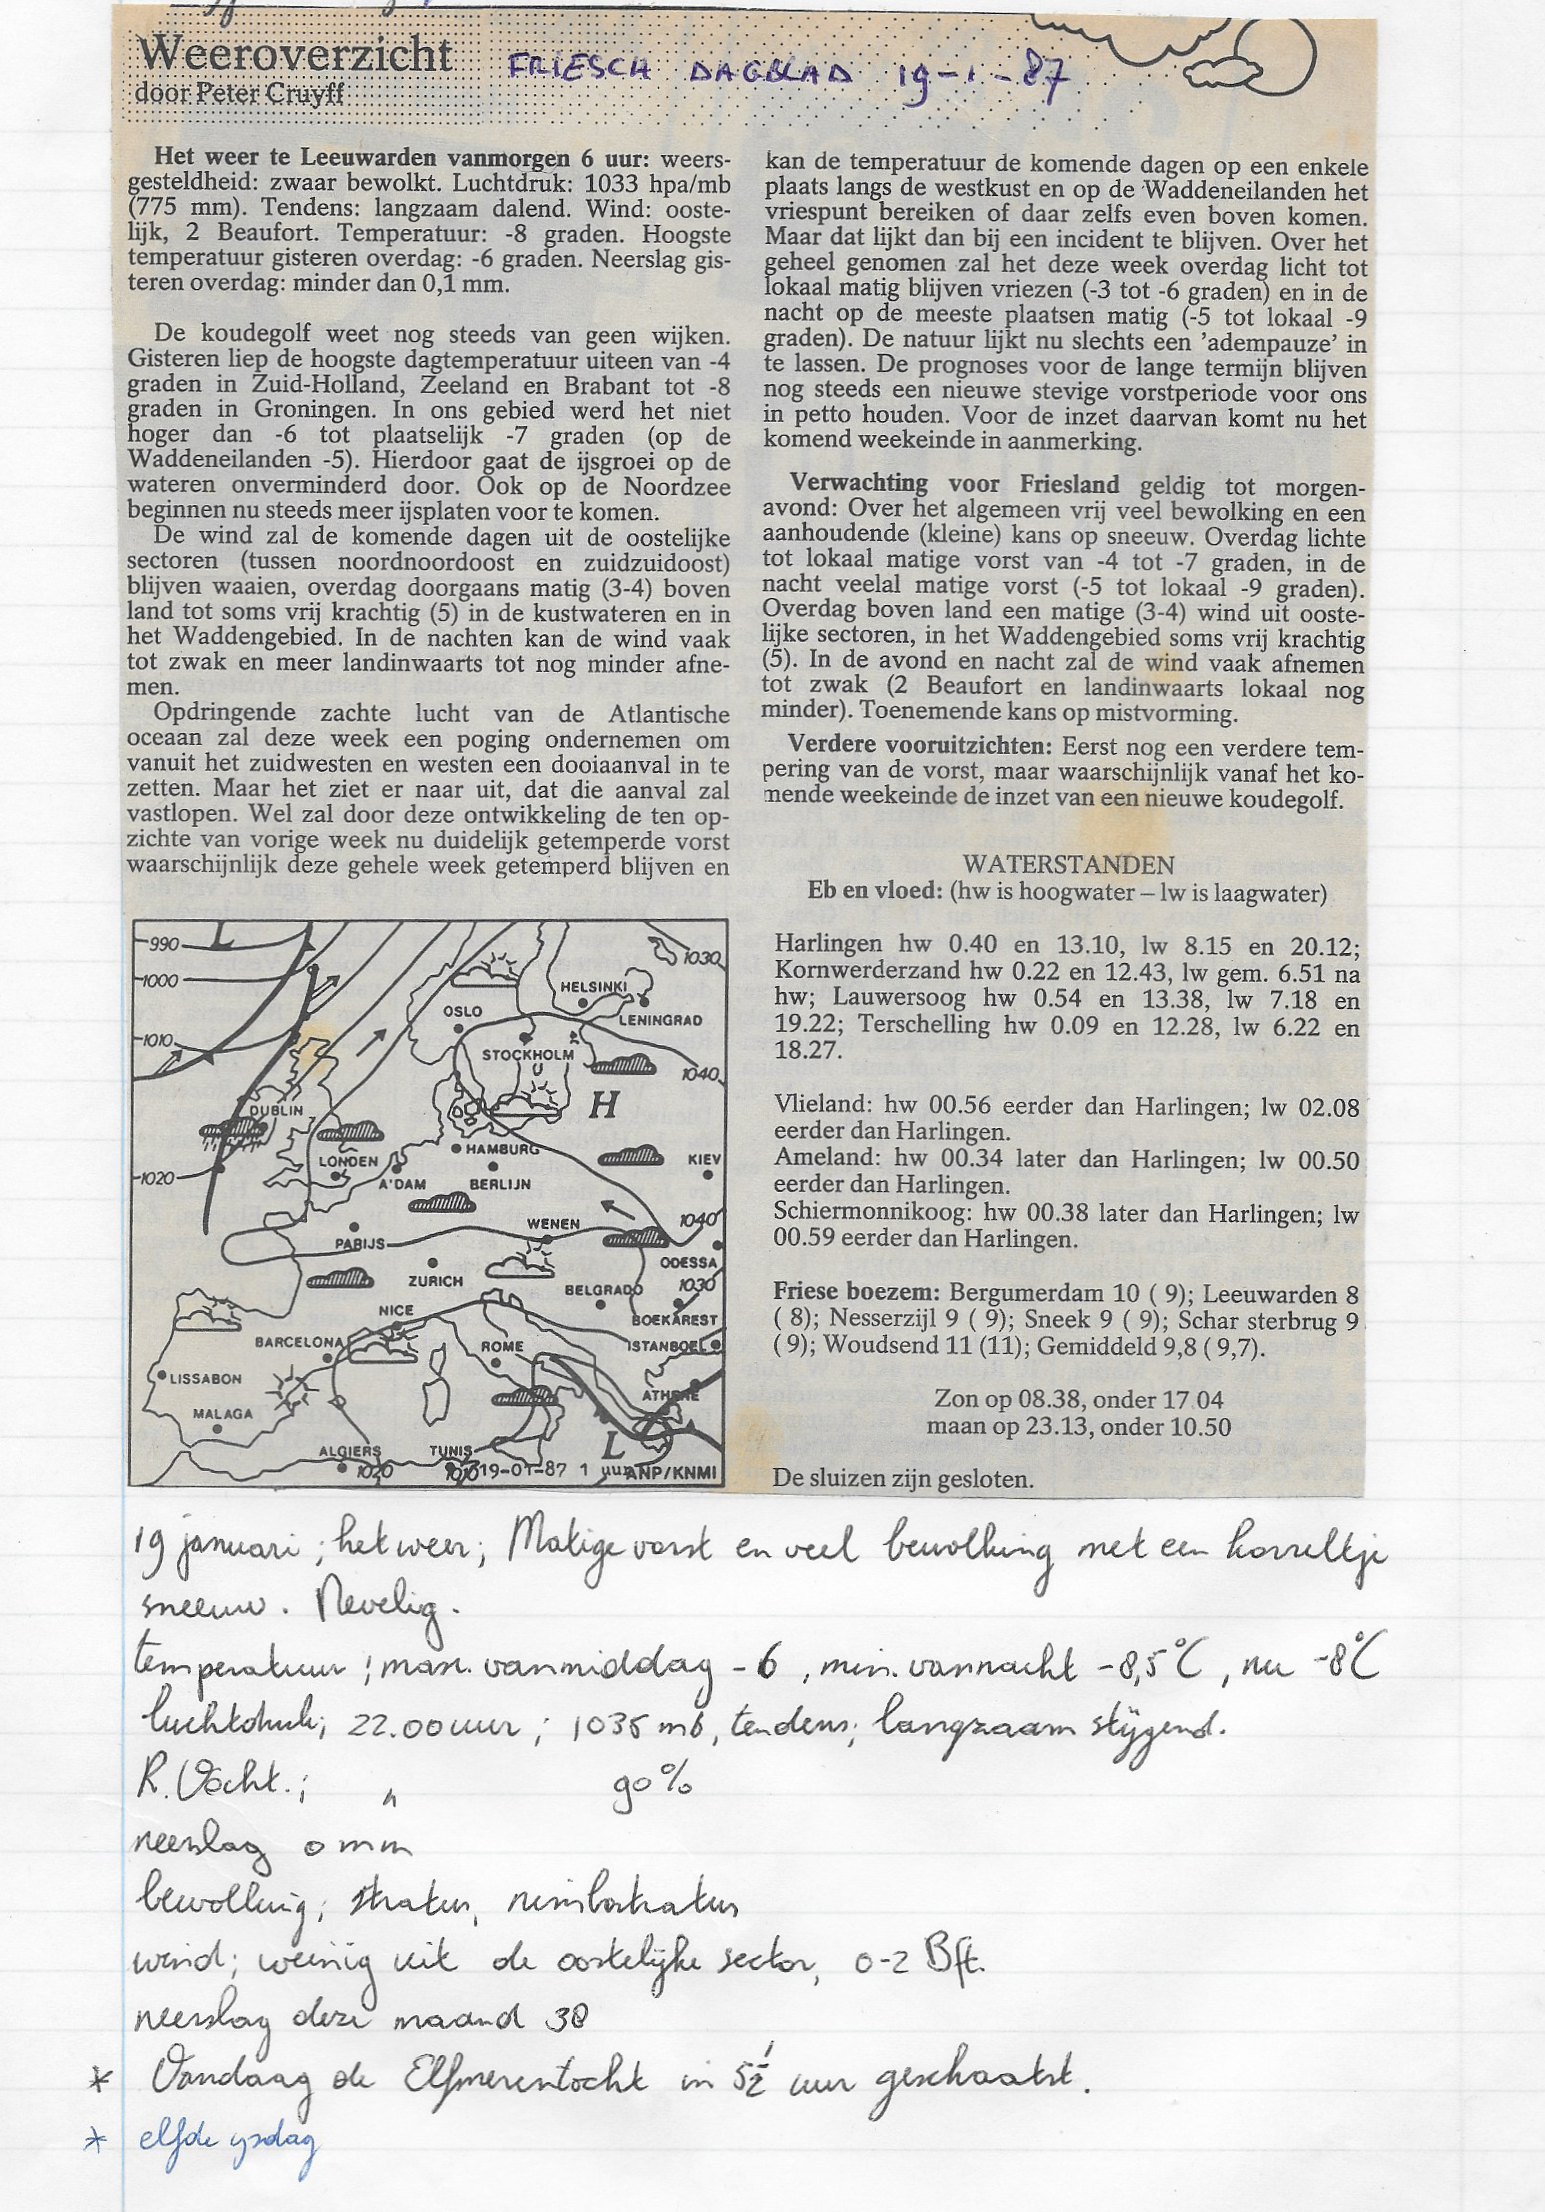 Weeroverzicht
door Peter Cruyff
FRIESCH DAGBLAD 19-1-87
Het weer te Leeuwarden vanmorgen 6 uur: weers-
gesteldheid: zwaar bewolkt. Luchtdruk: 1033 hpa/mb
(775 mm). Tendens: langzaam dalend. Wind: ooste-
lijk, 2 Beaufort. Temperatuur: -8 graden. Hoogste
temperatuur gisteren overdag: -6 graden. Neerslag gis-
teren overdag: minder dan 0,1 mm.
De koudegolf weet nog steeds van geen wijken.
Gisteren liep de hoogste dagtemperatuur uiteen van -4
graden in Zuid-Holland, Zeeland en Brabant tot -8
graden in Groningen. In ons gebied werd het niet
hoger dan -6 tot plaatselijk -7 graden (op de
Waddeneilanden -5). Hierdoor gaat de ijsgroei op de
wateren onverminderd door. Ook op de Noordzee
beginnen nu steeds meer ijsplaten voor te komen.
De wind zal de komende dagen uit de oostelijke
sectoren (tussen noordnoordoost en zuidzuidoost)
blijven waaien, overdag doorgaans matig (3-4) boven
land tot soms vrij krachtig (5) in de kustwateren en in
het Waddengebied. In de nachten kan de wind vaak
tot zwak en meer landinwaarts tot nog minder afne-
men.
Opdringende zachte lucht van de Atlantische
oceaan zal deze week een poging ondernemen om
vanuit het zuidwesten en westen een dooiaanval in te
zetten. Maar het ziet er naar uit, dat die aanval zal
vastlopen. Wel zal door deze ontwikkeling de ten op-
zichte van vorige week nu duidelijk getemperde vorst
waarschijnlijk deze gehele week getemperd blijven en
kan de temperatuur de komende dagen op een enkele
plaats langs de westkust en op de Waddeneilanden het
vriespunt bereiken of daar zelfs even boven komen.
Maar dat lijkt dan bij een incident te blijven. Over het
geheel genomen zal het deze week overdag licht tot
lokaal matig blijven vriezen (-3 tot -6 graden) en in de
nacht op de meeste plaatsen matig (-5 tot lokaal -9
graden). De natuur lijkt nu slechts een 'adempauze' in
te lassen. De prognoses voor de lange termijn blijven
nog steeds een nieuwe stevige vorstperiode voor ons
in petto houden. Voor de inzet daarvan komt nu het
komend weekeinde in aanmerking.
Verwachting voor Friesland geldig tot morgen-
avond: Over het algemeen vrij veel bewolking en een
aanhoudende (kleine) kans op sneeuw. Overdag lichte
tot lokaal matige vorst van -4 tot -7 graden, in de
nacht veelal matige vorst (-5 tot lokaal -9 graden).
Overdag boven land een matige (3-4) wind uit ooste-
lijke sectoren, in het Waddengebied soms vrij krachtig
(5). In de avond en nacht zal de wind vaak afnemen
tot zwak (2 Beaufort en landinwaarts lokaal nog
minder). Toenemende kans op mistvorming.
Verdere vooruitzichten: Eerst nog een verdere tem-
pering van de vorst, maar waarschijnlijk vanaf het ko-
mende weekeinde de inzet van een nieuwe koudegolf.
WATERSTANDEN
Eb en vloed: (hw is hoogwater – lw is laagwater)
Harlingen hw 0.40 en 13.10, lw 8.15 en 20.12;
Kornwerderzand hw 0.22 en 12.43, lw gem. 6.51 na
hw; Lauwersoog hw 0.54 en 13.38, lw 7.18 en
19.22; Terschelling hw 0.09 en 12.28, lw 6.22 en
18.27.
Vlieland: hw 00.56 eerder dan Harlingen; lw 02.08
eerder dan Harlingen.
Ameland: hw 00.34 later dan Harlingen; lw 00.50
eerder dan Harlingen.
Schiermonnikoog: hw 00.38 later dan Harlingen; lw
00.59 eerder dan Harlingen.
Friese boezem: Bergumerdam 10 ( 9); Leeuwarden 8
( 8); Nesserzijl 9 ( 9); Sneek 9 ( 9); Schar sterbrug 9
( 9); Woudsend 11 (11); Gemiddeld 9,8 ( 9,7).
Zon op 08.38, onder 17.04
maan op 23.13, onder 10.50
De sluizen zijn gesloten.
990 L 1030
1000
HELSINKI
OSLO LENINGRAD
1010
STOCKHOLM
1040
H
DUBLIN
HAMBURG
LONDEN KIEV
1020 A'DAM BERLIJN
WENEN 1040
PARIJS
ODESSA
ZURICH
BELGRADO 1030
NICE BOEKAREST
BARCELONA ROME ISTANBOEL
LISSABON
ATHENE
MALAGA
L
ALGIERS TUNIS
1020 1010 19-01-87 1 uur ANP/KNMI
19 januari; het weer; Matige vorst en veel bewolking met een korreltje
sneeuw. Nevelig.
temperatuur; max. vanmiddag -6, min. vannacht -8,5°C, nu -8°C
luchtdruk; 22.00 uur; 1035 mb, tendens; langzaam stijgend.
R.Vocht.; " 90%
neerslag 0 mm
bewolking; stratus, nimbostratus
wind; weinig uit de oostelijke sector, 0-2 Bft.
neerslag deze maand 38
* Vandaag de Elfmerentocht in 5½ uur geschaatst.
* elfde ijsdag